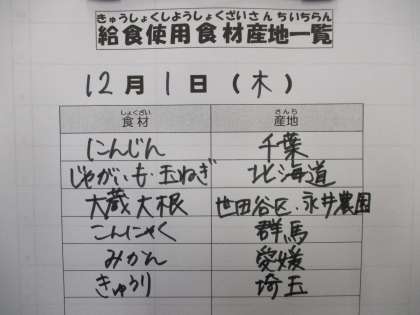 きゅうしょくしようしょくざいさんちいちらん
給食使用食材産地一覧
12月1日(木)
しょくざい さんち
食材 産地
にんじん 千葉
じゃがいも・玉ねぎ 北海道
大蔵大根 世田谷区・永井農園
こんにゃく 群馬
みかん 愛媛
きゅうり 埼玉